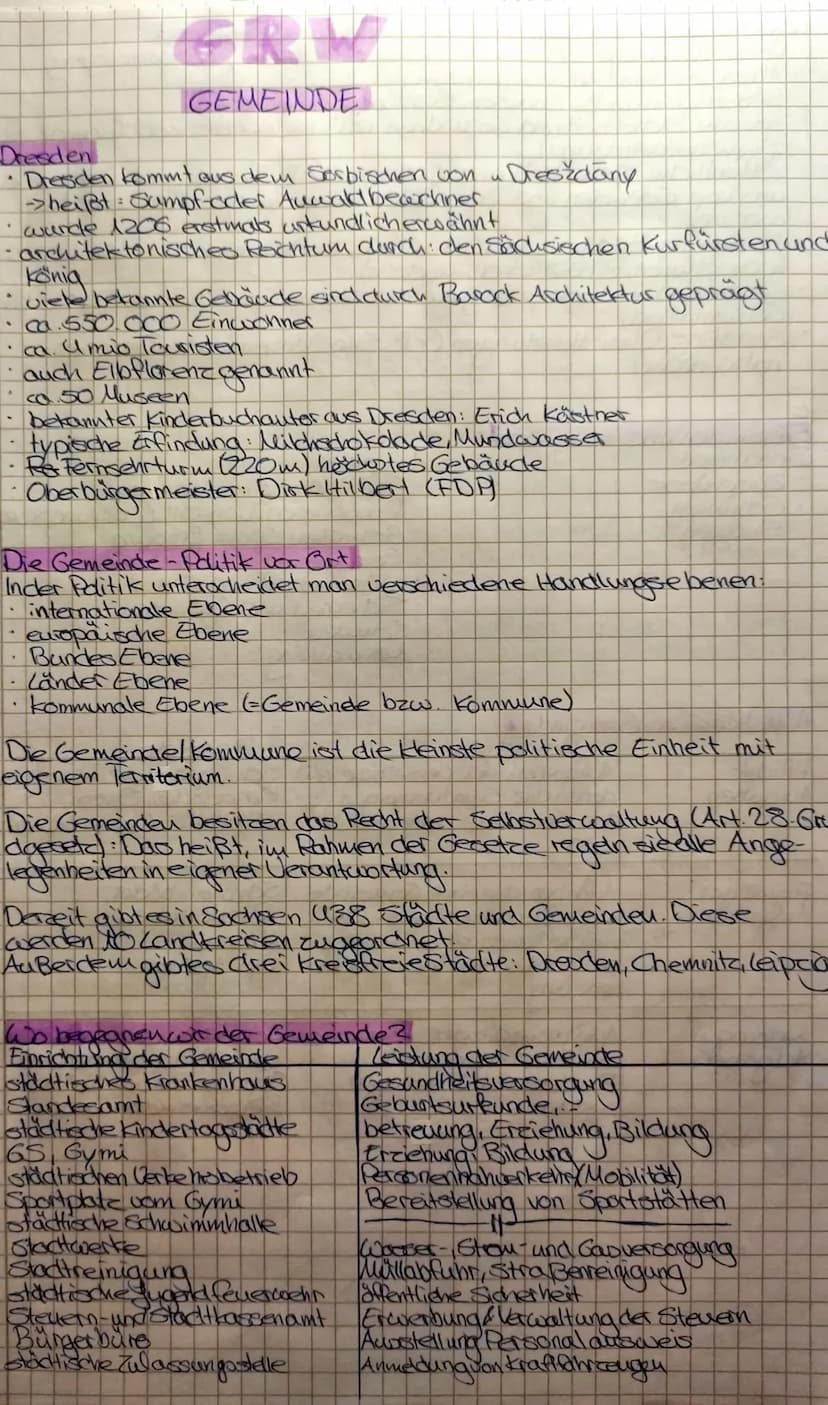 GRW
GEMEINDE
Dresden
· Dresden kommt aus dem Sorbischen von „Drežďany
-> heißt: Sumpf- oder Auwaldbewohner
· wurde 1206 erstmals urkundlich erwähnt
- architektonisches Reichtum durch: den Sächsischen Kurfürsten und
König
· viele bekannte Gebäude sind durch Barock Architektur geprägt
· ca. 550.000 Einwohner
· ca. 4 mio Touristen
· auch Elbflorenz genannt
· ca. 50 Museen
· bekannter Kinderbuchautor aus Dresden: Erich Kästner
· typische Erfindung: Milchschokolade, Mundwasser
· Fernsehrturm (220m) höchstes Gebäude
· Oberbürgermeister: Dirk Hilbert (FDP)
Die Gemeinde - Politik vor Ort
In der Politik unterscheidet man verschiedene Handlungsebenen:
· internationale Ebene
· europäische Ebene
· Bundes Ebene
· Länder Ebene
· kommunale Ebene (=Gemeinde bzw. Kommune)
Die Gemeinde/Kommune ist die kleinste politische Einheit mit
eigenem Territorium.
Die Gemeinden besitzen das Recht der Selbstverwaltung (Art. 28. Gru
dgesetz): Das heißt, im Rahmen der Gesetze regeln sie alle Ange-
legenheiten in eigener Verantwortung.
Derzeit gibt es in Sachsen 438 Städte und Gemeinden. Diese
werden 10 Landkreisen zugeordnet.
Außerdem gibt es drei Kreisfreie Städte: Dresden, Chemnitz, Leipzig
Wo begegnen wir der Gemeinde?
Einrichtung der Gemeinde | Leistung der Gemeinde
städtisches Krankenhaus | Gesundheitsversorgung
Standesamt | Geburtsurkunde,..
städtische Kindertagsstädte | betreuung, Erziehung, Bildung
GS, Gymi | Erziehung, Bildung
städtischen Verkehrsbetrieb | Personennahverkehr (Mobilität)
Sportplatz vom Gymi | Bereitstellung von Sportstätten
städtische Schwimmhalle | —"—
Stadtwerke | Wasser-, Strom- und Gasversorgung
Stadtreinigung | Müllabfuhr, Straßenreinigung
städtische Jugendfeuerwehr | öffentliche Sicherheit
Steuern- und Stadtkassenamt | Erwerbung & Verwaltung der Steuern
Bürgerbüro | Ausstellung Personalausweis
städtische Zulassungsstelle | Anmeldung von Kraftfahrzeugen